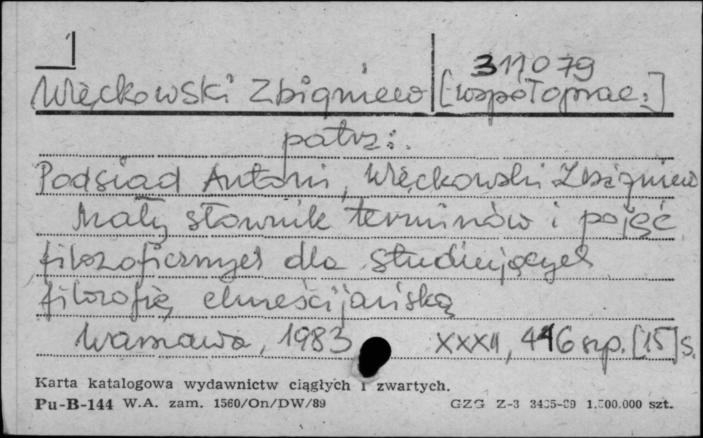 1
311079
Więckowski Zbigniew [współoprac.]
patrz:
Podsiad Antoni, Więckowski Zbigniew
Mały słownik terminów i pojęć
filozoficznych dla studiujących
filozofię chrześcijańską
Warszawa, 1983 XXXII, 446 szp. [15] s.
Karta katalogowa wydawnictw ciągłych i zwartych.
Pu-B-144 W.A. zam. 1560/On/DW/89 GZG Z-3 1.500.000 szt.